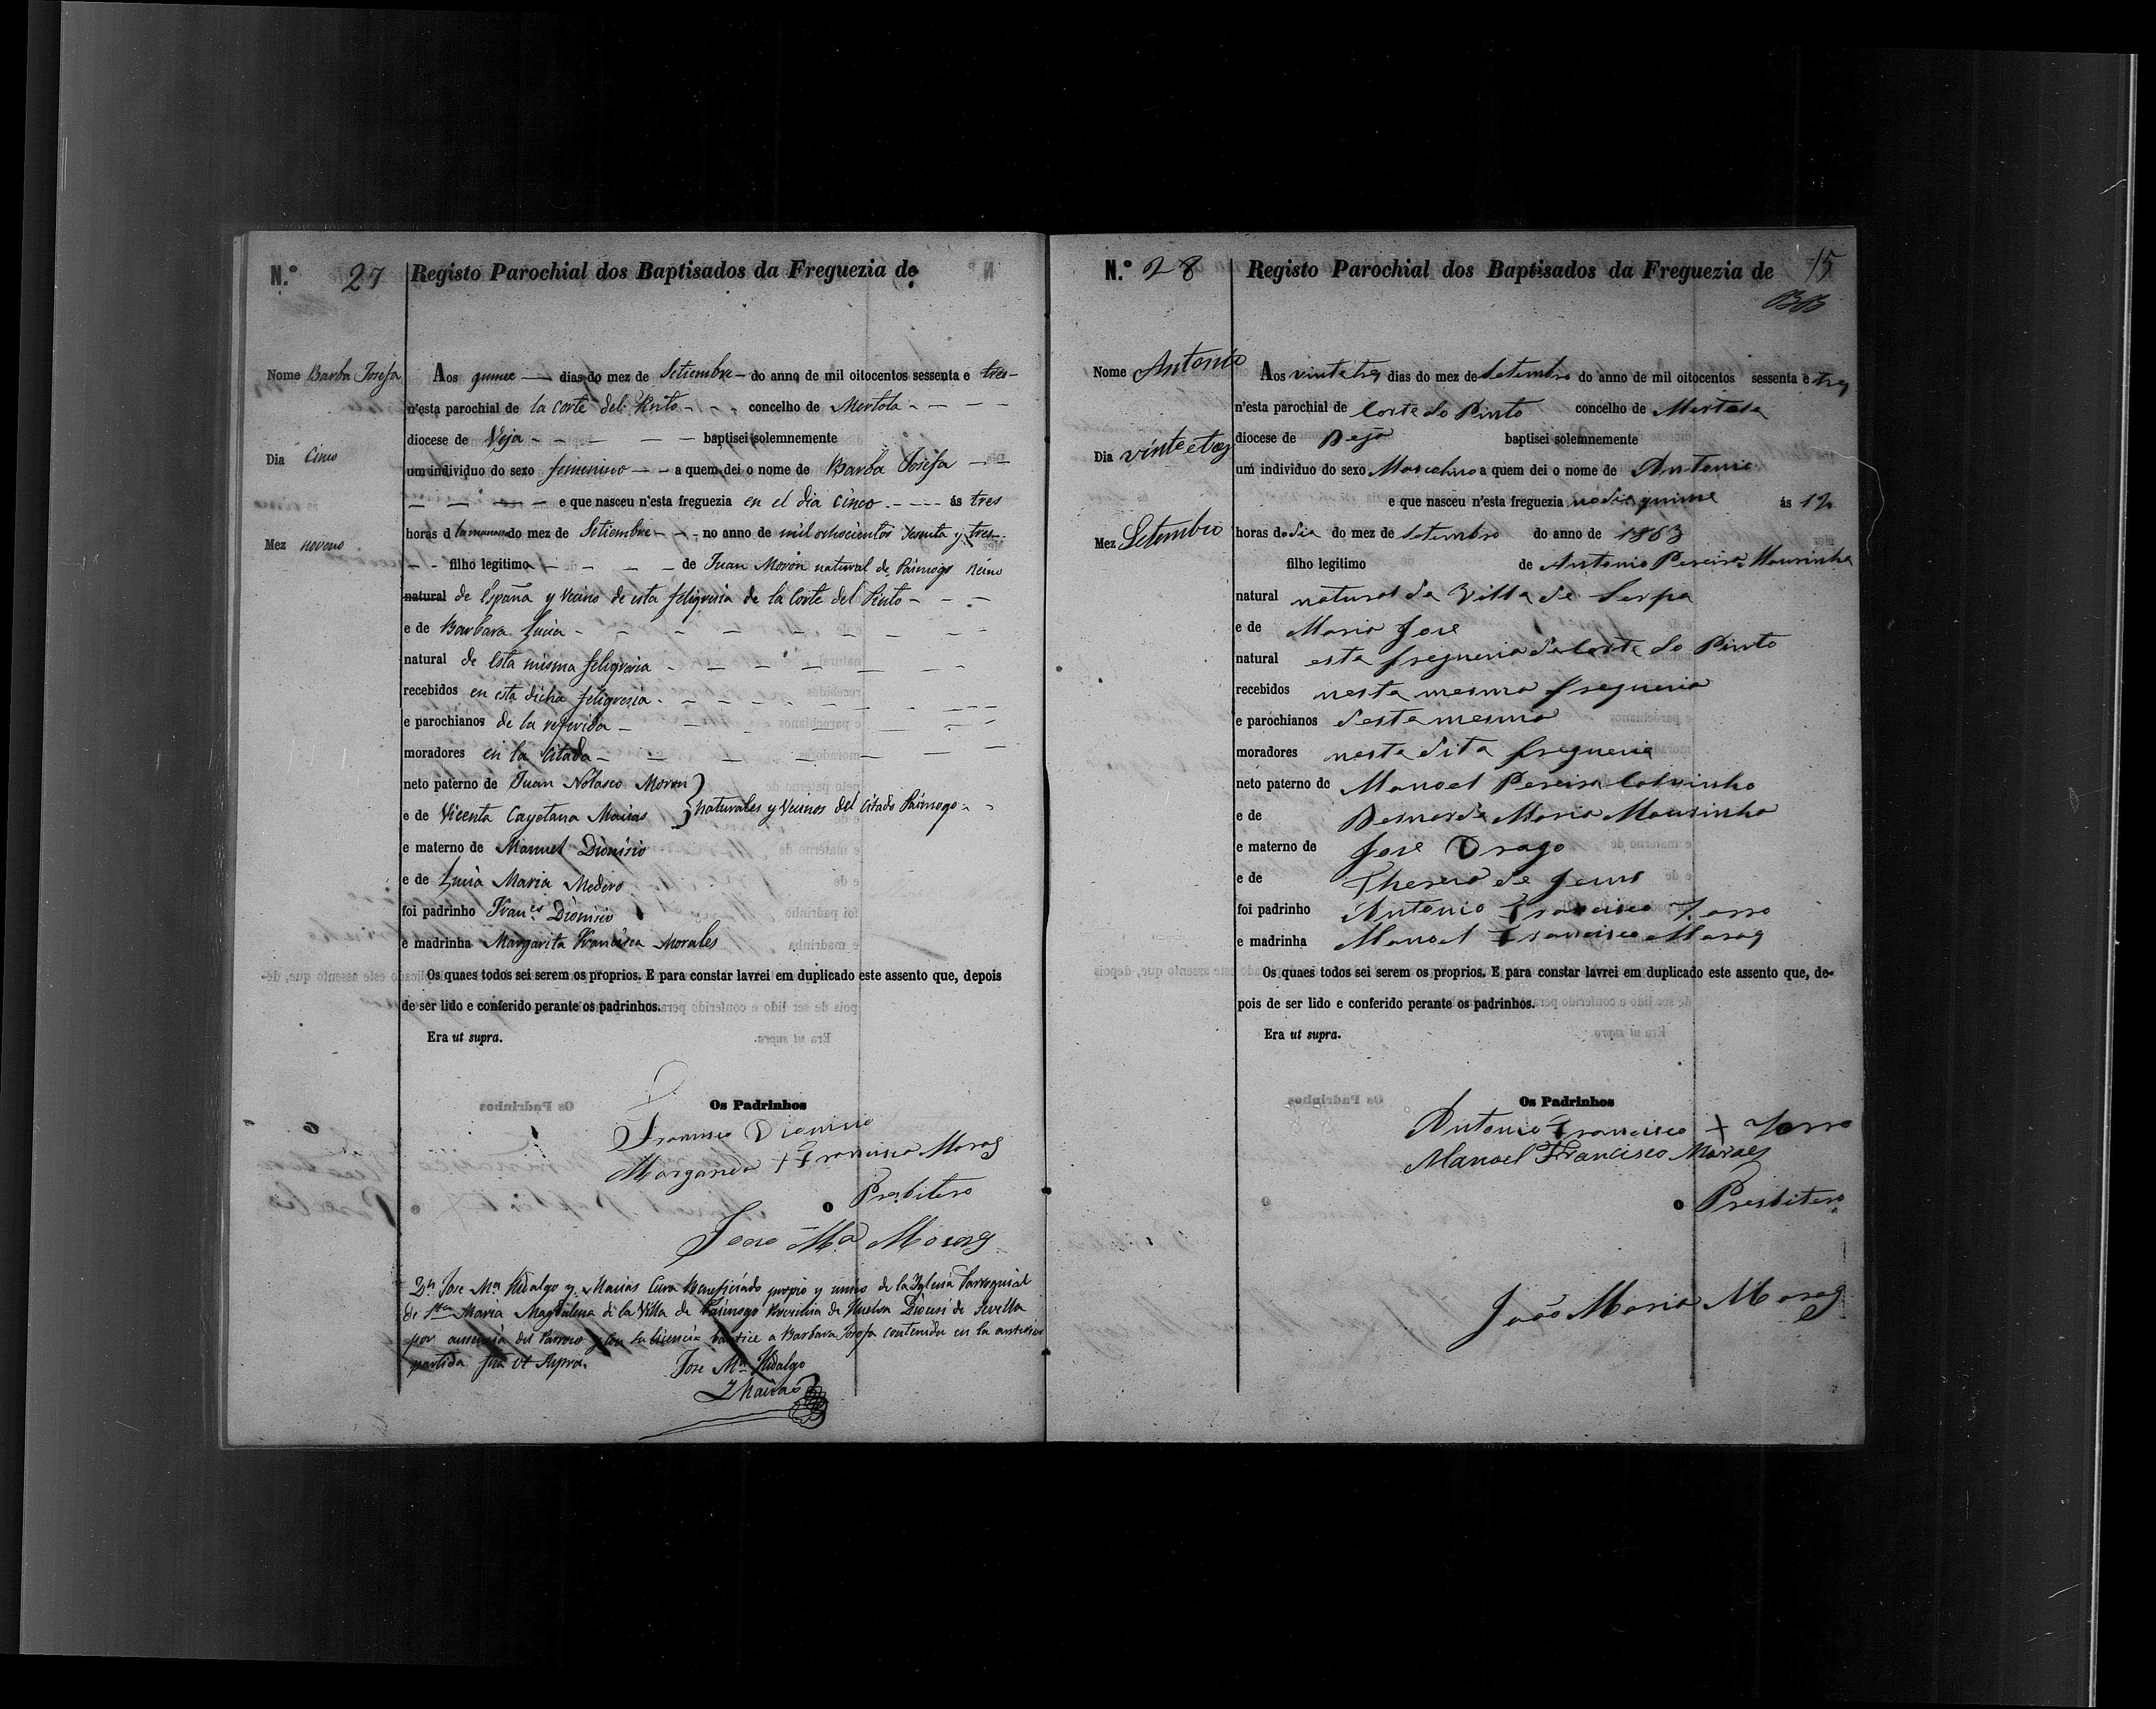 N.º 27 Registo Parochial dos Baptisados da Freguezia de
Nome Barba Josefa
Dia Cinco
Mez noveno
Aos quince dias do mez de Setiembre do anno de mil oitocentos sessenta e tres
n'esta parochial de la Corte del Pinto concelho de Mertola
diocese de Veja baptisei solemnemente
um individuo do sexo femenino a quem dei o nome de Barba Josefa
e que nasceu n'esta freguezia en el dia cinco ás tres
horas d la manana do mez de Setiembre no anno de mil ochocientos sesenta y tres
filho legitimo de Juan Moron natural de Paimogo Reino
natural de España y Vecino de esta feligresia de la Corte del Pinto
e de Barbara Lucia
natural de Esta misma feligresia
recebidos en esta dicha feligresia
e parochianos de la referida
moradores en la Citada
neto paterno de Juan Nolasco Moron
e de Vicenta Cayetana Macias } naturales y Vecinos del Citado Paimogo
e materno de Manuel Dionisio
e de Lucia Maria Medero
foi padrinho Fran.co Dionisio
e madrinha Margarita Francisca Morales
Os quaes todos sei serem os proprios. E para constar lavrei em duplicado este assento que, depois
de ser lido e conferido perante os padrinhos.
Era ut supra.
Os Padrinhos
Francisco Dionisio
Margarida + Francisca Moraes
o Presbitero
João Ma Moraes
Dn Jose Ma Hidalgo y Macias Cura Beneficiado propio y unico de la Yglesia Parroquial
de Sta Maria Magdalena de la Villa de Paimogo Provincia de Huelva Diocesi de Sevilla
por ausencia del Parroco y con su licencia bautice a Barbara Josefa contenida en la anterior
partida fha Ut Supra.
Jose Ma Hidalgo
y Macias
N.º 28 Registo Parochial dos Baptisados da Freguezia de 15
Nome Antonio
Dia vinte e tres
Mez Setembro
Aos vinte tres dias do mez de Setembro do anno de mil oitocentos sessenta e tres
n'esta parochial de Corte do Pinto concelho de Mertola
diocese de Beja baptisei solemnemente
um individuo do sexo Masculino a quem dei o nome de Antonio
e que nasceu n'esta freguezia no dia quinse ás 12
horas do dia do mez de Setembro do anno de 1863
filho legitimo de Antonio Pereira Mousinho
natural natural da Villa de Serpa
e de Maria Jose
natural esta freguezia da Corte do Pinto
recebidos nesta mesma freguezia
e parochianos desta mesma
moradores nesta dita freguezia
neto paterno de Manoel Pereira
e de Bernarda Maria Mousinho
e materno de Jose Drago
e de Thereza de Jesus
foi padrinho Antonio Francisco
e madrinha Manoel Francisco Moraes
Os quaes todos sei serem os proprios. E para constar lavrei em duplicado este assento que, de-
pois de ser lido e conferido perante os padrinhos.
Era ut supra.
Os Padrinhos
Antonio Francisco +
Manoel Francisco Moraes
o Presbitero
João Maria Moraes